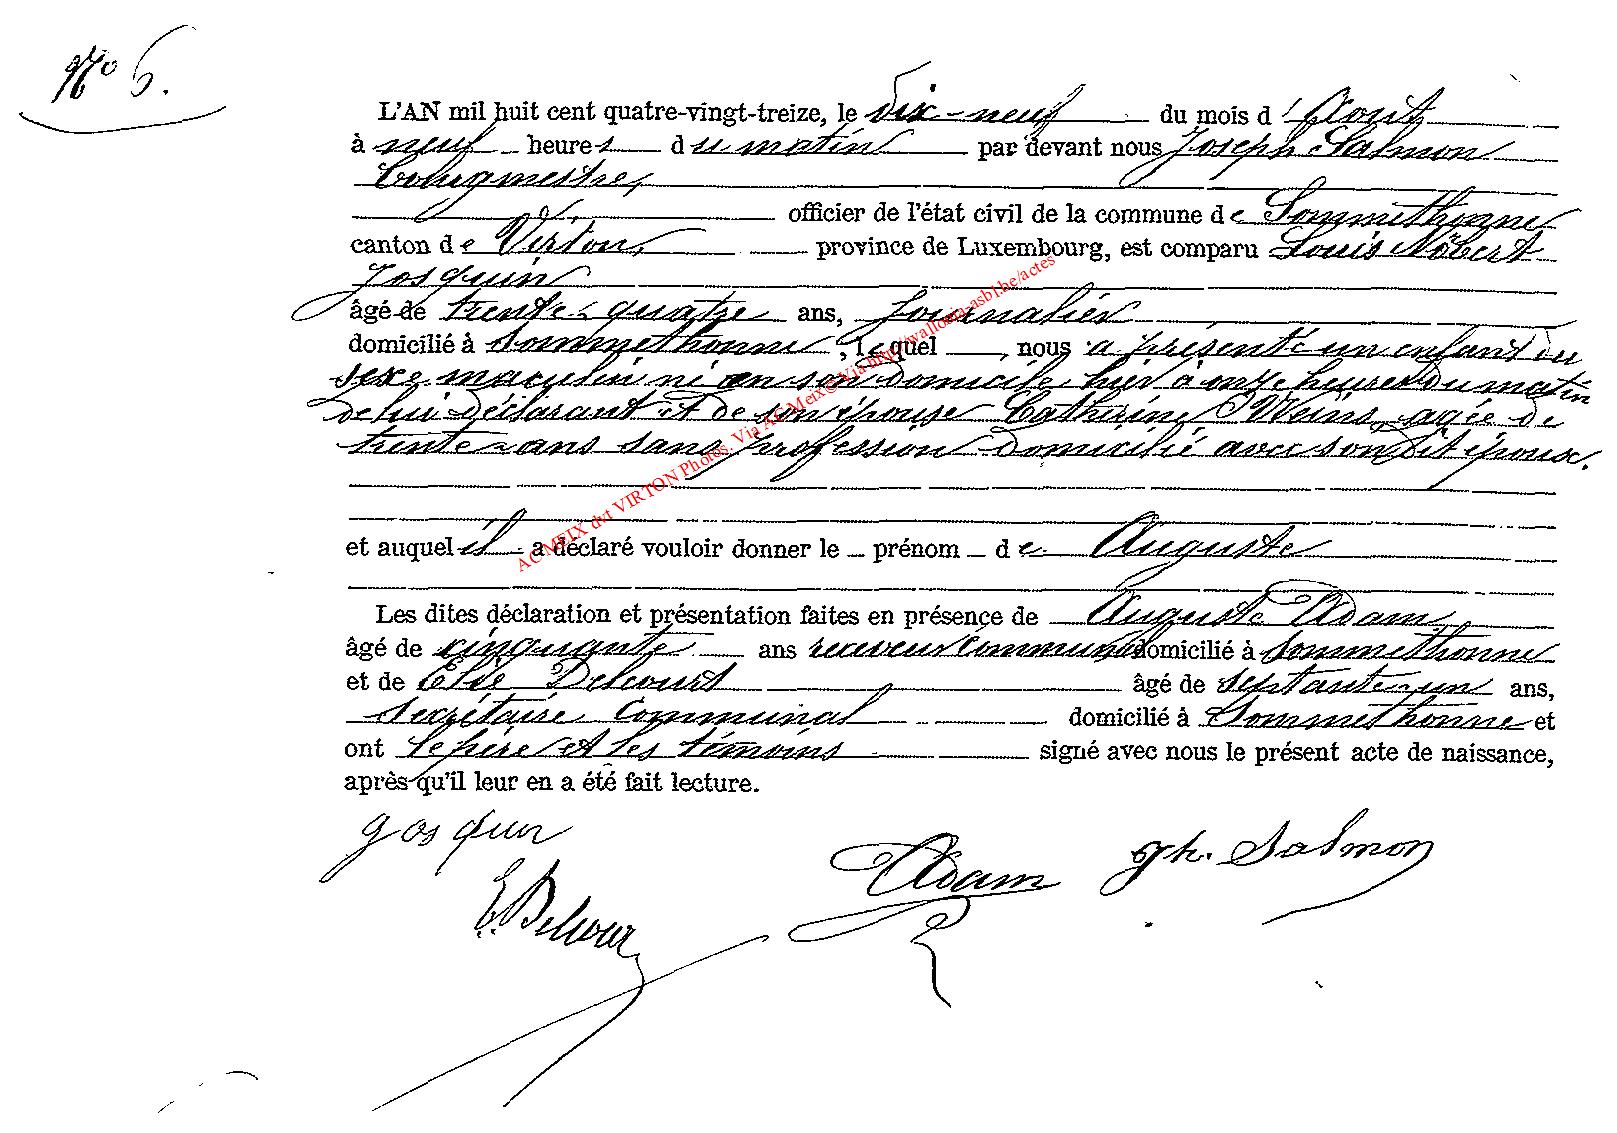 N° 6.
L'AN mil huit cent quatre-vingt-treize, le dix-neuf du mois d'Août
à neuf heures du matin par devant nous Joseph Salmon
bourgmestre,
officier de l'état civil de la commune de Sommethonne
canton de Virton, province de Luxembourg, est comparu Louis Norbert
Josquin
âgé de trente-quatre ans, journalier
domicilié à Sommethonne, lequel nous a présenté un enfant du
sexe masculin né en son domicile hier à onze heures du matin
de lui déclarant et de son épouse Catherine Weins, agée de
trente ans sans profession domicilié avec son dit époux.
et auquel il a déclaré vouloir donner le prénom de Auguste
Les dites déclaration et présentation faites en présence de Auguste Adam
âgé de cinquante ans receveur communal domicilié à Sommethonne
et de Elie Delcourt âgé de septante-un ans,
secrétaire communal domicilié à Sommethonne et
ont le père et les témoins signé avec nous le présent acte de naissance,
après qu'il leur en a été fait lecture.
Josquin
Adam
Jh. Salmon
E. Delcour
ACMEIX dvt VIRTON Photos. Via AC Meix © Via http://wallonia-asbl.be/actes